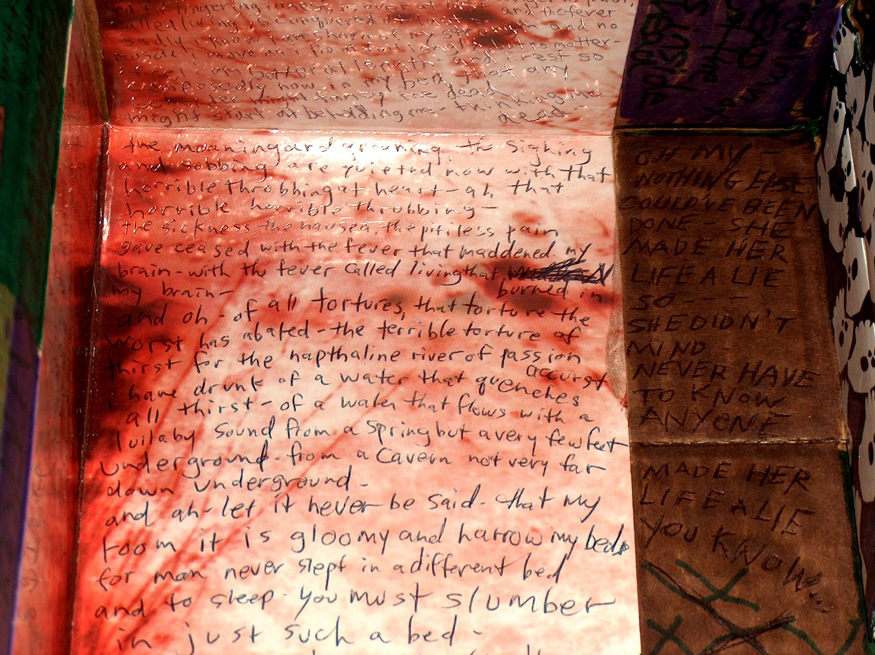 and the fever
called living is conquered at last
sadly I know I am shorn of my strength and no
muscle I move as I lie at full length but no matter
I feel I am better at length and I rest so
composedly now in my bed that any
beholder might fancy me dead
might start at beholding me, thinking me
dead.
the moaning and groaning the sighing
and sobbing are quieted now with that
horrible throbbing at heart-ah that
horrible horrible throbbing-
the sickness, the nausea, the pitiless pain
gave ceased with the fever that maddened my
brain-with the fever called living that
burned in
my brain-
and oh-of all tortures, that torture the
worst has abated-the terrible torture of
thirst for the hapthaline river of passion
accurst
have drunk of a water that quenches
all thirst-of a water that flows with a
lullaby sound from a spring but a very few feet
underground-from a cavern not very far
down underground-
and ah-let it never be said-that my
room it is gloomy and harrow my bed
for man never slept in a different bed
and to sleep-you must slumber
in just such a bed-
OH MY
NOTHING ELSE
COULD'VE BEEN
DONE SHE
MADE HER
LIFE A LIE
SO -
SHE DIDN'T
MIND
NEVER HAVE
TO KNOW
ANYONE
MADE HER
LIFE A LIE
YOU KNOW...